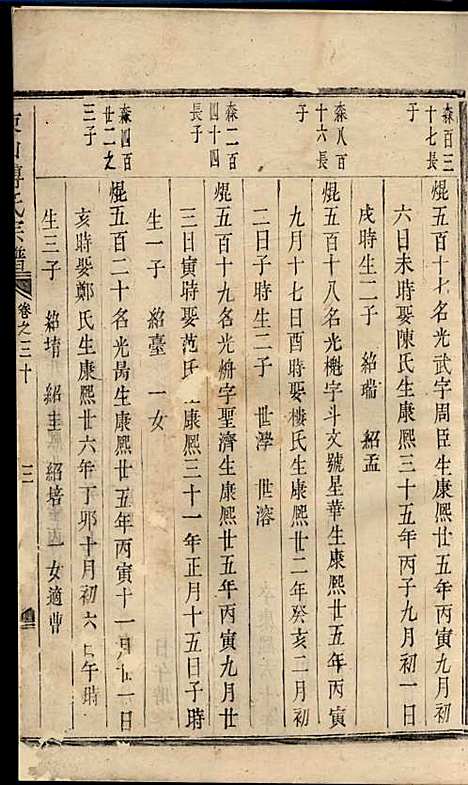 森百三
十七長
子
焜五百十七名光武字周臣生康熙廿五年丙寅九月初
六日未時娶陳氏生康熙三十五年丙子九月初一日
戌時生二子 紹瑞 紹孟
森八百
十六長
子
焜五百十八名光樾字斗文號星華生康熙廿五年丙寅
九月十七日酉時娶樓氏生康熙廿二年癸亥二月初
二日子時生二子 世澤 世溶
森二百
四十四
長子
焜五百十九名光 字聖濟生康熙廿五年丙寅九月廿
三日寅時娶范氏 康熙三十一年正月十五日子時
生一子 紹臺 一女
森四百
廿二之
三子
焜五百二十名光昺生康熙廿五年丙寅十一月廿一日
亥時娶鄭氏生康熙廿六年丁卯十月初六日午時
生三子 紹堉 紹圭 紹培 一女適曹
傅氏宗譜
卷之三十
三